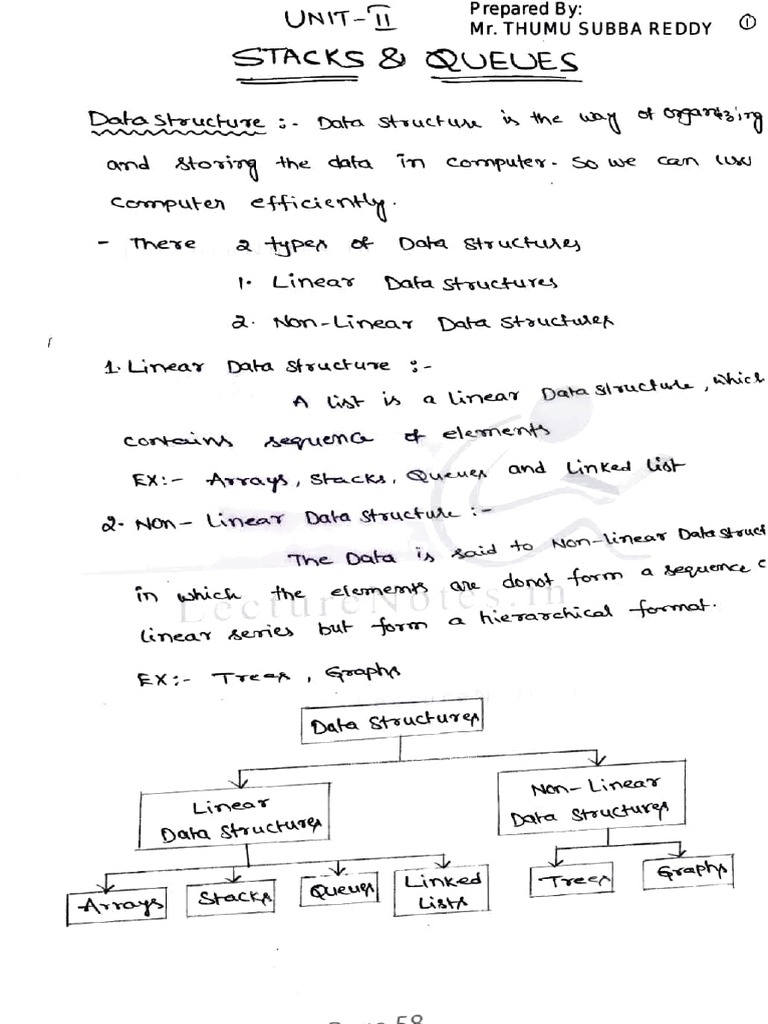 UNIT-II
Prepared By:
Mr. THUMU SUBBA REDDY
1
STACKS & QUEUES
Data Structure :- Data structure is the way of organizing
and storing the data in computer. So we can use
computer efficiently.
- There 2 types of Data structures
1. Linear Data structures
2. Non-Linear Data Structures
1. Linear Data structure :-
A list is a linear Data structure, which
contains sequence of elements
EX:- Arrays, stacks, Queues and Linked list
2. Non-Linear Data structure :-
The Data is said to Non-linear Data struct
in which the elements are donot form a sequence
LectureNotes.in
linear series but form a hierarchical format.
EX:- Trees, Graphs
Data Structures
Linear
Data structures
Non-Linear
Data structures
Arrays
Stacks
Queues
Linked
Lists
Trees
Graphs
58